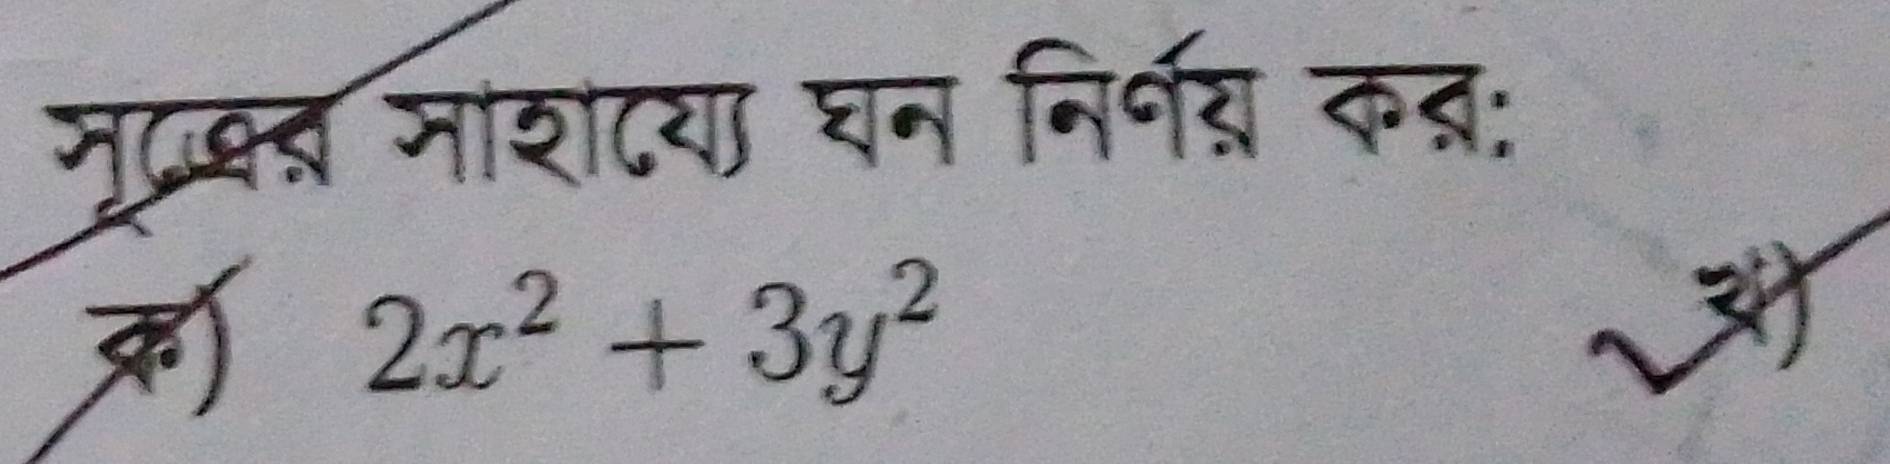 সূত্রের সাহায্যে ঘন নির্ণয় কর:
ক) 2x² + 3y² খ)